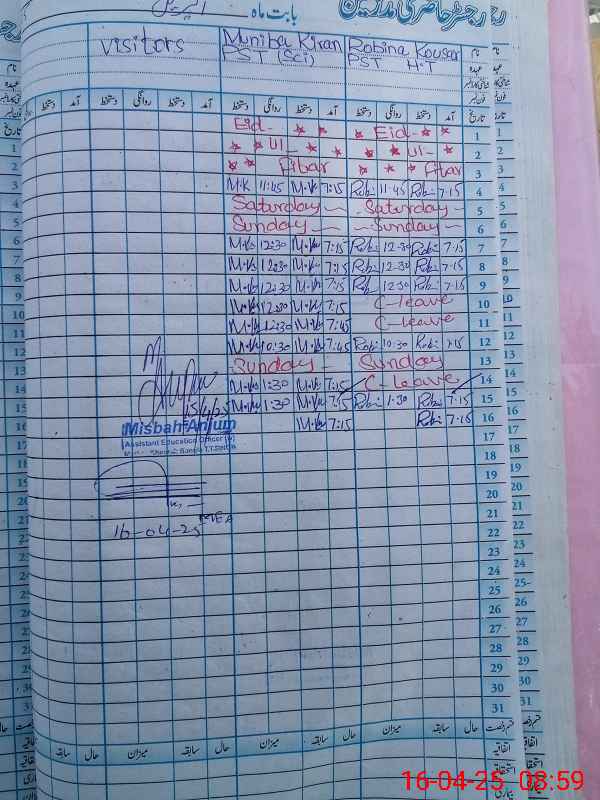 رجسٹر حاضری مدرسین
بابت ماہ اپریل
visitors Muniba Kiran Robina Kousar نام
PST (Sci) PST H.T عہدہ
دستخط آمد دستخط روانگی دستخط آمد دستخط روانگی دستخط آمد دستخط روانگی دستخط آمد تاریخ
Eid- ★ ★ Eid- ★ ★ 1
★ ★ Ul- ★ ★ ★ ★ Ul- ★ 2
★ ★ Fitar ★ ★ ★ Fitar 3
M.K 11:45 M.K 7:15 Rob: 11:45 Rob: 7:15 4
Saturday Saturday 5
Sunday Sunday 6
M.K 12:30 M.K 7:15 Rob: 12:30 Rob: 7:15 7
M.K 12:30 M.K 7:15 Rob: 12:30 Rob: 7:15 8
M.K 12:30 M.K 7:15 Rob: 12:30 Rob: 7:15 9
M.K 12:30 M.K 7:15 C-leave 10
M.K 12:30 M.K 7:45 C-leave 11
M.K 10:30 M.K 7:45 Rob: 10:30 Rob: 7:15 12
Sunday Sunday 13
M.K 1:30 M.K 7:15 C-leave 14
M.K 1:30 M.K 7:15 Rob: 1:30 Rob: 7:15 15
M.K 7:15 Rob: 7:15 16
15/4/25
Misbah Anjum
Assistant Education Officer (W)
17
18
19
20
21
MEA
16-04-25
22
23
24
25
26
27
28
29
30
31
سابقہ حال میزان سابقہ حال میزان سابقہ حال میزان سابقہ حال قسم رخصت
اتفاقیہ
استحقاقیہ
بیماری
16-04-25 08:59